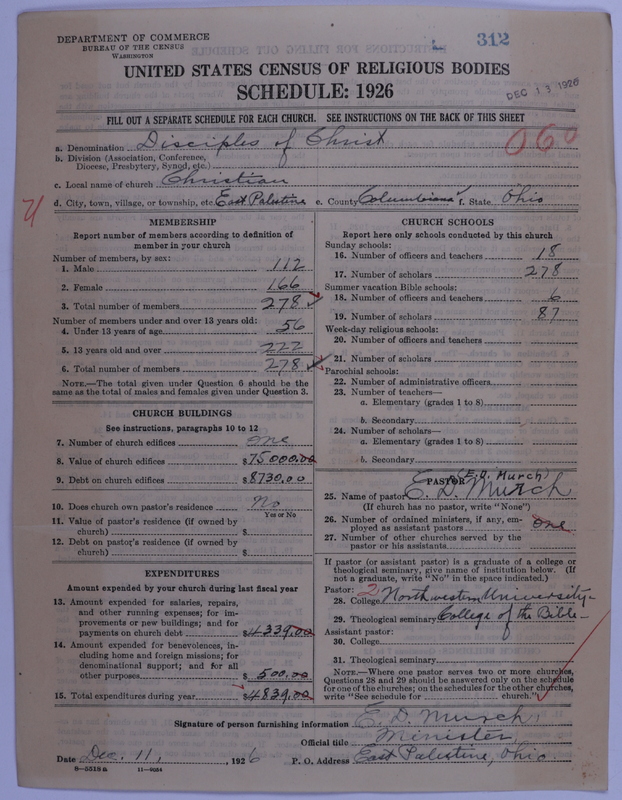 DEPARTMENT OF COMMERCE
BUREAU OF THE CENSUS
WASHINGTON
312
UNITED STATES CENSUS OF RELIGIOUS BODIES
SCHEDULE: 1926
DEC 13 1926
FILL OUT A SEPARATE SCHEDULE FOR EACH CHURCH. SEE INSTRUCTIONS ON THE BACK OF THIS SHEET
060
a. Denomination Disciples of Christ
b. Division (Association, Conference, Diocese, Presbytery, Synod, etc.)
c. Local name of church Christian
d. City, town, village, or township, etc. East Palestine e. County Columbiana f. State Ohio
MEMBERSHIP
Report number of members according to definition of member in your church
Number of members, by sex:
1. Male 112
2. Female 166
3. Total number of members 278
Number of members under and over 13 years old:
4. Under 13 years of age 56
5. 13 years old and over 222
6. Total number of members 278
NOTE.—The total given under Question 6 should be the same as the total of males and females given under Question 3.
CHURCH BUILDINGS
See instructions, paragraphs 10 to 12
7. Number of church edifices one
8. Value of church edifices $75000.00
9. Debt on church edifices $8730.00
10. Does church own pastor's residence No
Yes or No
11. Value of pastor's residence (if owned by church) $
12. Debt on pastor's residence (if owned by church) $
EXPENDITURES
Amount expended by your church during last fiscal year
13. Amount expended for salaries, repairs, and other running expenses; for improvements or new buildings; and for payments on church debt $4339.00
14. Amount expended for benevolences, including home and foreign missions; for denominational support; and for all other purposes $500.00
15. Total expenditures during year $4839.00
CHURCH SCHOOLS
Report here only schools conducted by this church
Sunday schools:
16. Number of officers and teachers 18
17. Number of scholars 278
Summer vacation Bible schools:
18. Number of officers and teachers 6
19. Number of scholars 87
Week-day religious schools:
20. Number of officers and teachers
21. Number of scholars
Parochial schools:
22. Number of administrative officers
23. Number of teachers—
a. Elementary (grades 1 to 8)
b. Secondary
24. Number of scholars—
a. Elementary (grades 1 to 8)
b. Secondary
PASTOR (E. D. Murch)
25. Name of pastor E. D. Murch
(If church has no pastor, write "None")
26. Number of ordained ministers, if any, employed as assistant pastors one
27. Number of other churches served by the pastor or his assistants
If pastor (or assistant pastor) is a graduate of a college or theological seminary, give name of institution below. (If not a graduate, write "No" in the space indicated.)
Pastor: 2
28. College Northwestern University
29. Theological seminary College of the Bible
Assistant pastor:
30. College
31. Theological seminary
NOTE.—Where one pastor serves two or more churches, Questions 28 and 29 should be answered only on the schedule for one of the churches; on the schedules for the other churches, write "See schedule for church."
Signature of person furnishing information E. D. Murch
Official title Minister
Date Dec. 11, 1926 P. O. Address East Palestine, Ohio.
8-5518a 11-9054